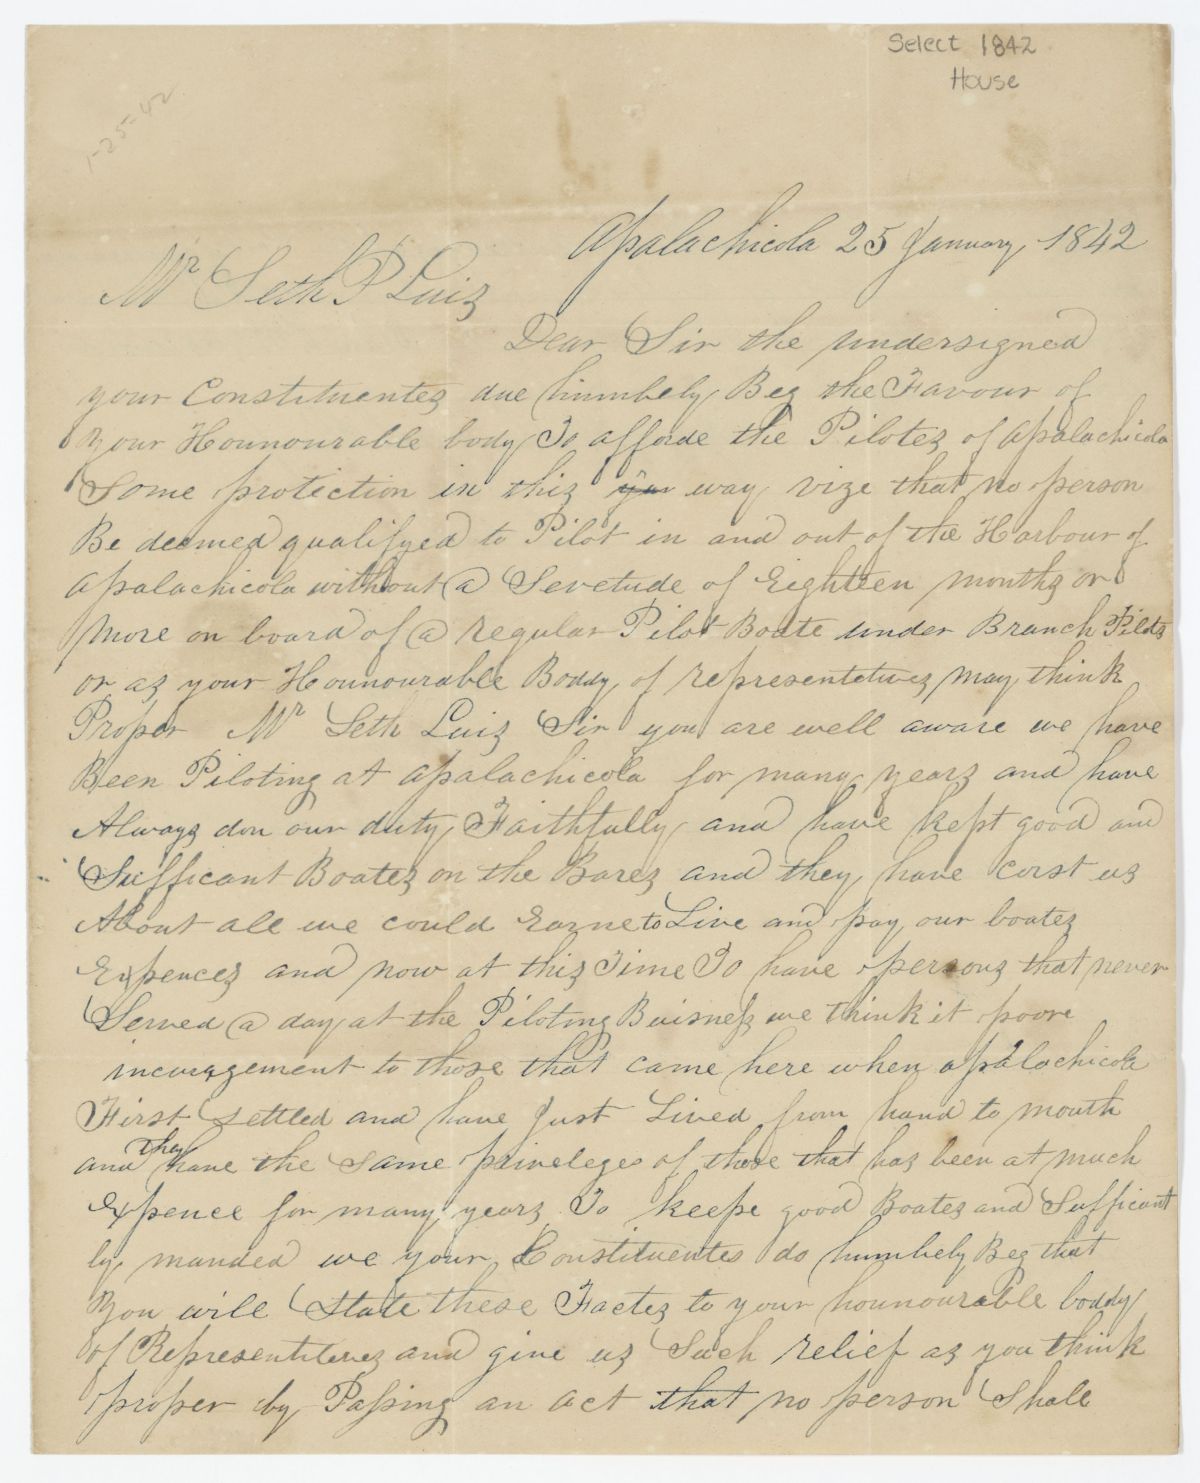 Select 1842
House
1-25-42
Apalachicola 25 January, 1842
Mr Seth P Luis
Dear Sir the undersigned
your Constituentes due humbely Beg the Favour of
your Hounourable body To afforde the Pilotes of Apalachicola
Some protection in this way vize that no person
Be deemed qualifyed to Pilot in and out of the Harbour of
Apalachicola without a Servetude of Eighteen months or
more on board of a regular Pilot Boate under Branch Pilots
or as your Hounourable Boddy of representetives may think
Proper Mr Seth Luis Sir you are well aware we have
Been Piloting at Apalachicola for many years and have
Always don our duty Faithfully and have kept good and
Sufficant Boates on the Bares and they have corst us
About all we could Earne to Live and pay our boates
Expences and now at this Time To have persons that never
Served a day at the Piloting Buisness we think it poore
incouragement to those that came here when apalachicola
First Settled and have Just Lived from hand to mouth
and they have the same priveleges of those that has been at much
Expence for many years To keepe good Boates and Sufficant
ly manded we your Constituentes do humbely Beg that
You will State these Factes to your hounourable boddy
of Representitives and give us Such relief as you think
proper by Passing an act that no person Shall